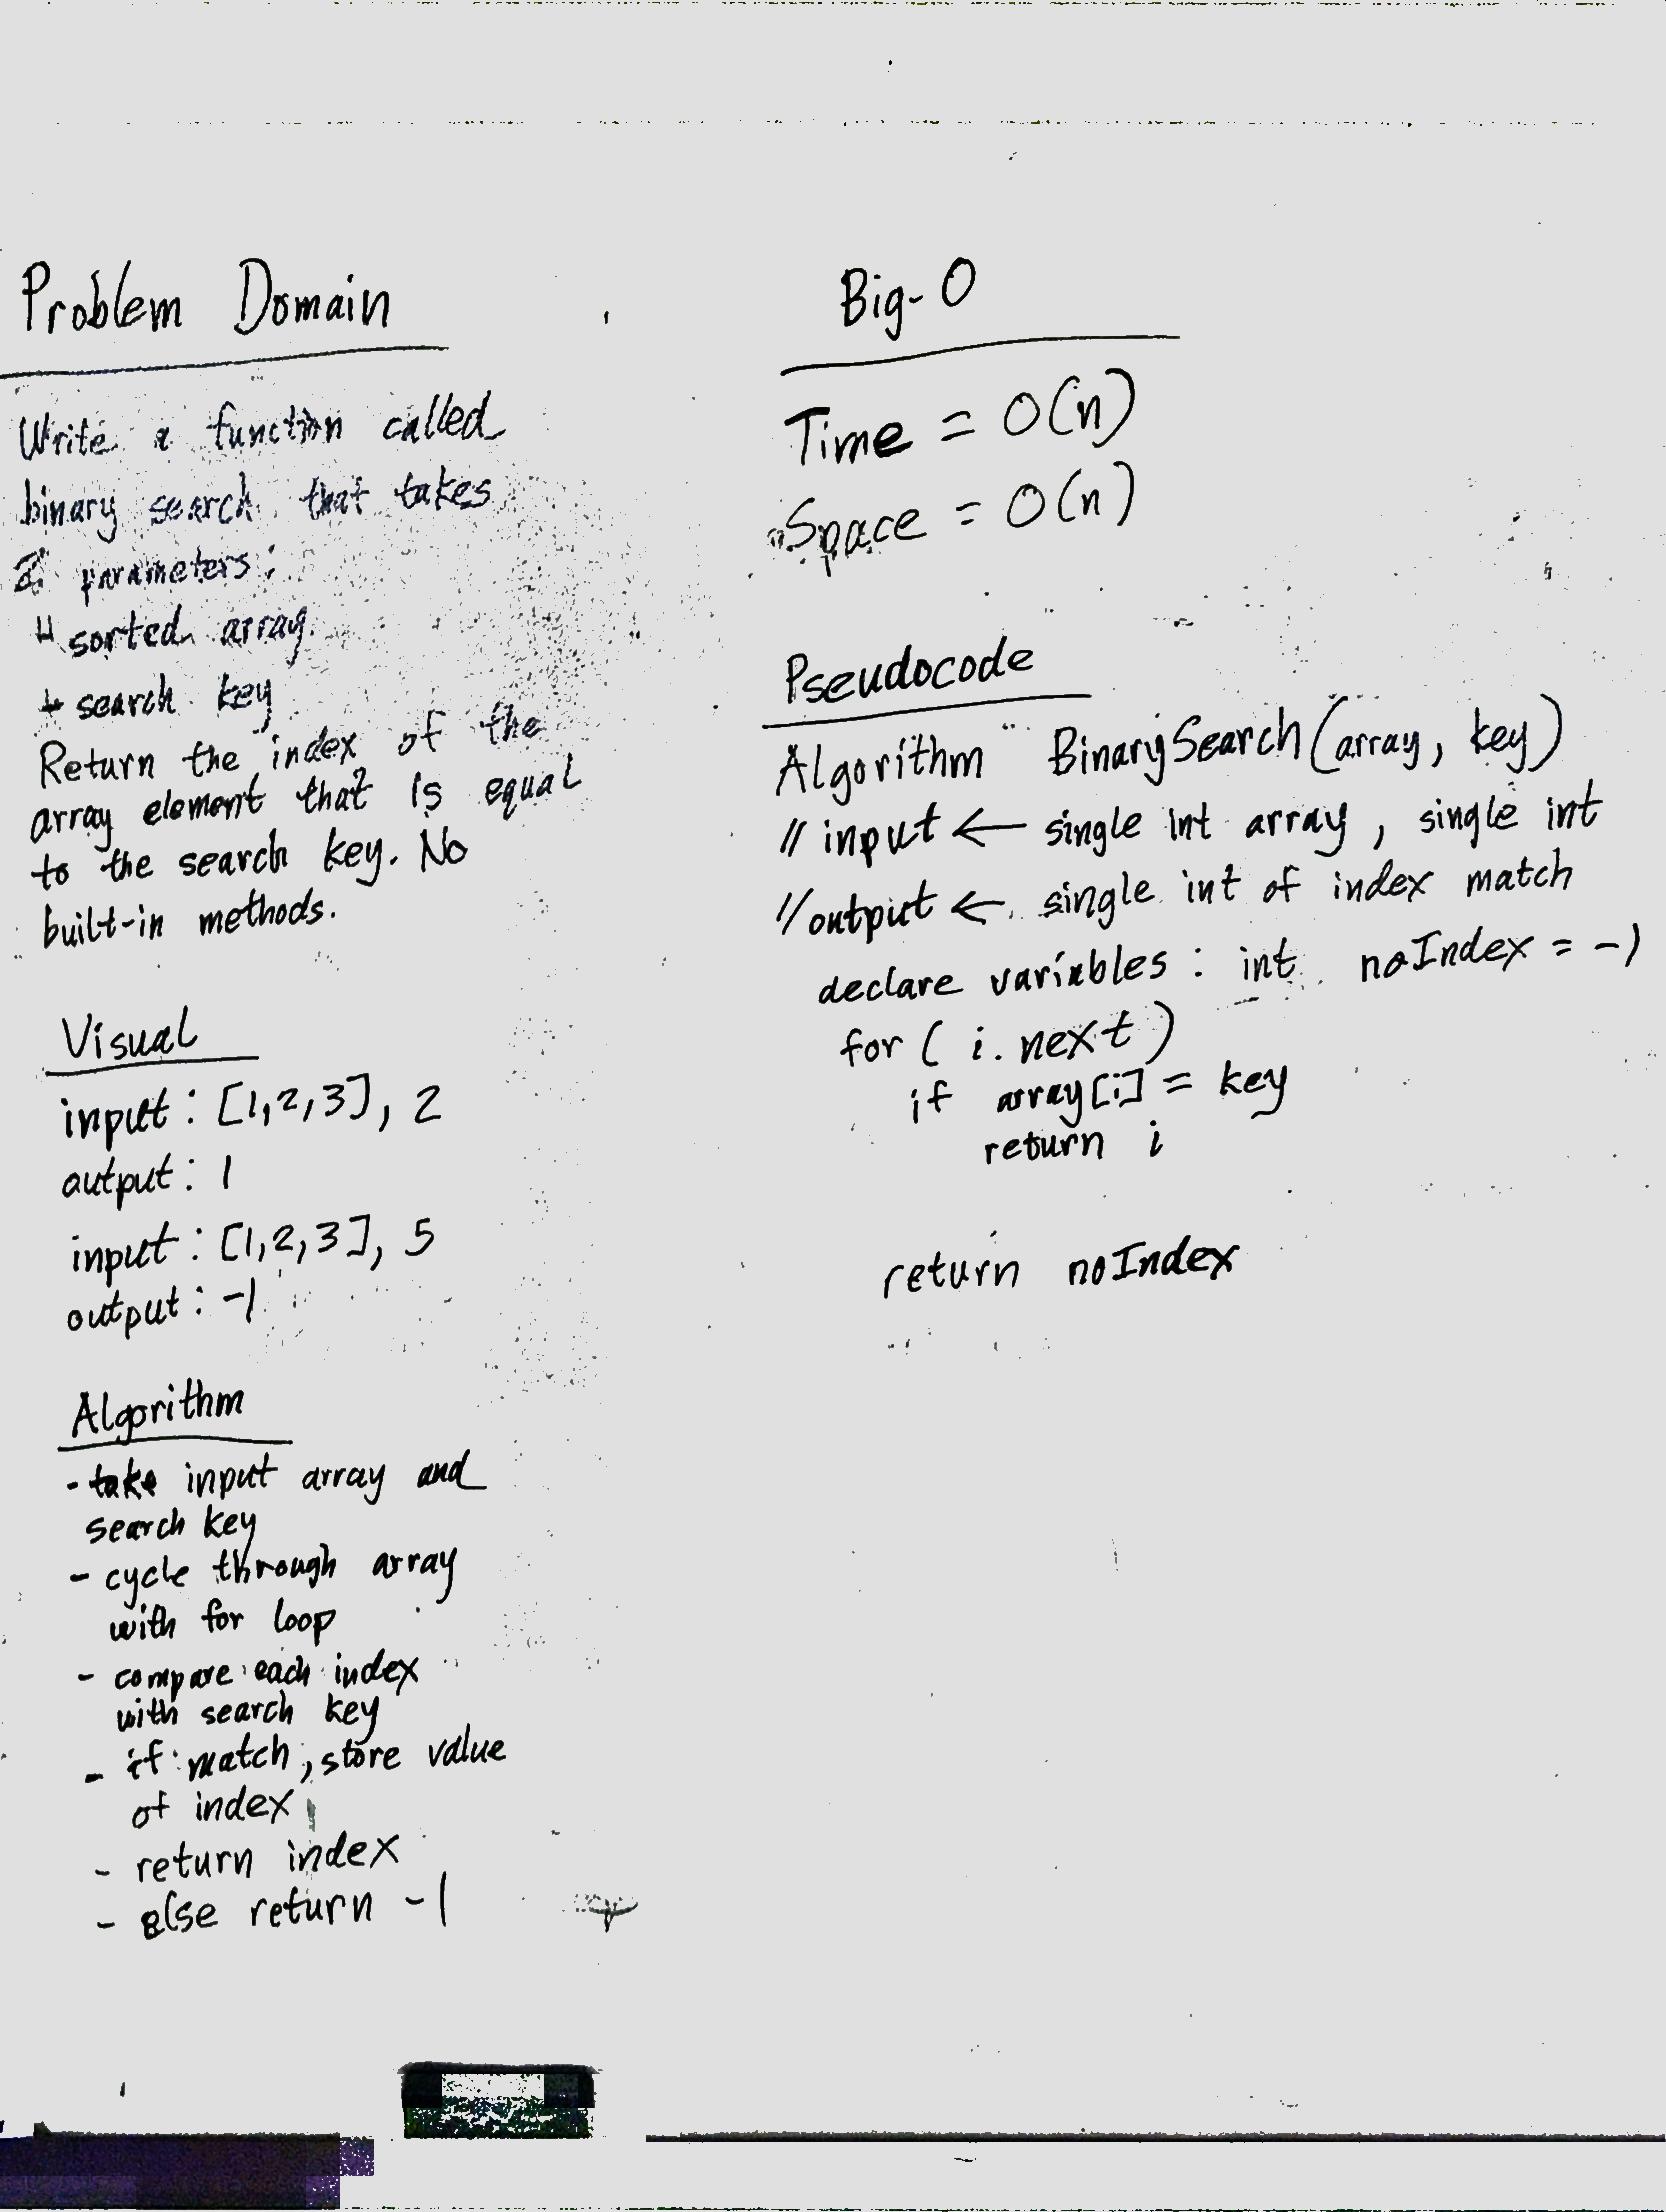 Problem Domain
Write a function called
binary search that takes
2 parameters:
sorted array
search key
Return the index of the
array element that is equal
to the search key. No
built-in methods.
Visual
input: [1,2,3], 2
output: 1
input: [1,2,3], 5
output: -1
Algorithm
- take input array and
search key
- cycle through array
with for loop
- compare each index
with search key
- if match, store value
of index
- return index
- else return -1
Big-O
Time = O(n)
Space = O(n)
Pseudocode
Algorithm BinarySearch(array, key)
// input ← single int array, single int
// output ← single int of index match
declare variables: int noIndex = -1
for ( i.next )
if array[i] = key
return i
return noIndex